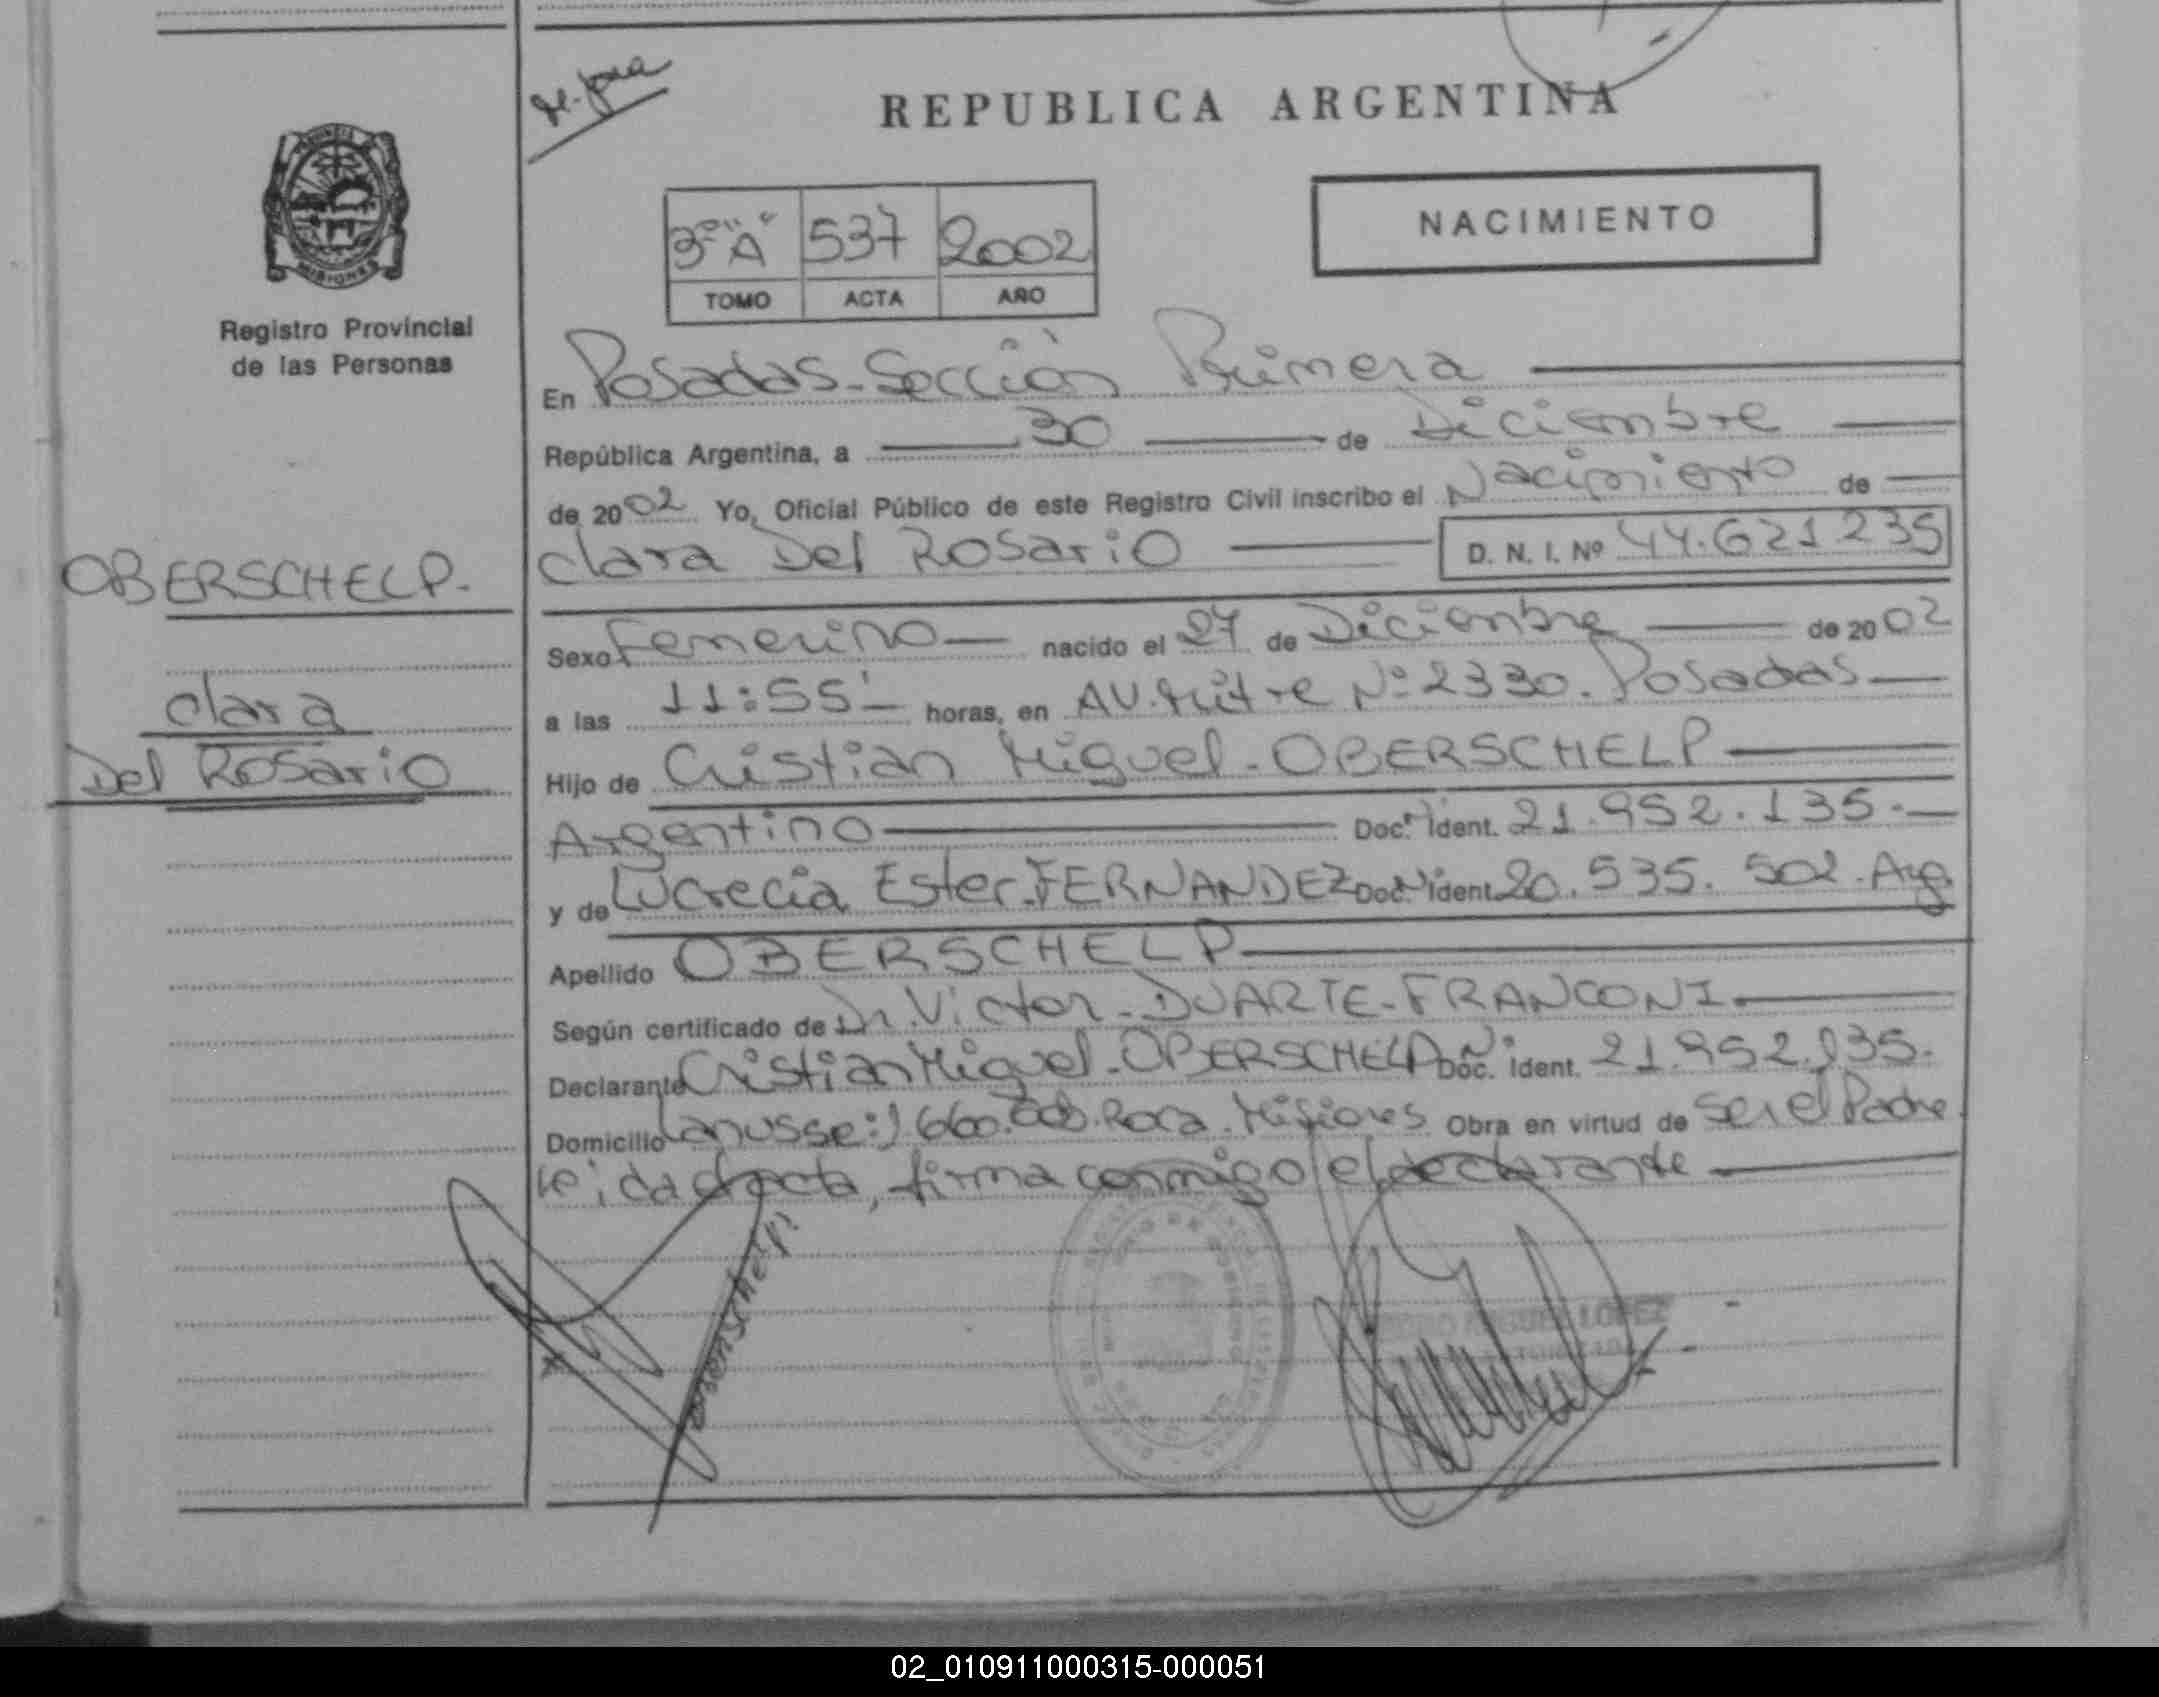 REPUBLICA ARGENTINA
NACIMIENTO
3º "A" 537 2002
TOMO ACTA AÑO
PROVINCIA
MISIONES
Registro Provincial
de las Personas
OBERSCHELP.
Clara
Del Rosario
En Posadas-Sección Primera
República Argentina, a 30 de Diciembre
de 2002 Yo, Oficial Público de este Registro Civil inscribo el Nacimiento de
Clara Del Rosario D. N. I. Nº 44.621235
Sexo Femenino nacido el 27 de Diciembre de 2002
a las 11:55' horas, en AV. Mitre Nº 2330. Posadas
Hijo de Cristian Miguel-OBERSCHELP
Argentino Doc. Nº ident. 21.952.135.
y de Lucrecia Ester. FERNANDEZ Doc. Nº ident. 20.535.502. Arg
Apellido OBERSCHELP
Según certificado de Dr. Victor-DUARTE-FRANCONI
Declarante Cristian Miguel-OBERSCHELP Doc. Nº ident. 21.952.135.
Domicilio Lanusse: 1660. Roca. Misiones Obra en virtud de ser el Padre
leida el acta, firma conmigo el declarante
OBERSCHELP
MIGUEL LOPEZ
02_010911000315-000051